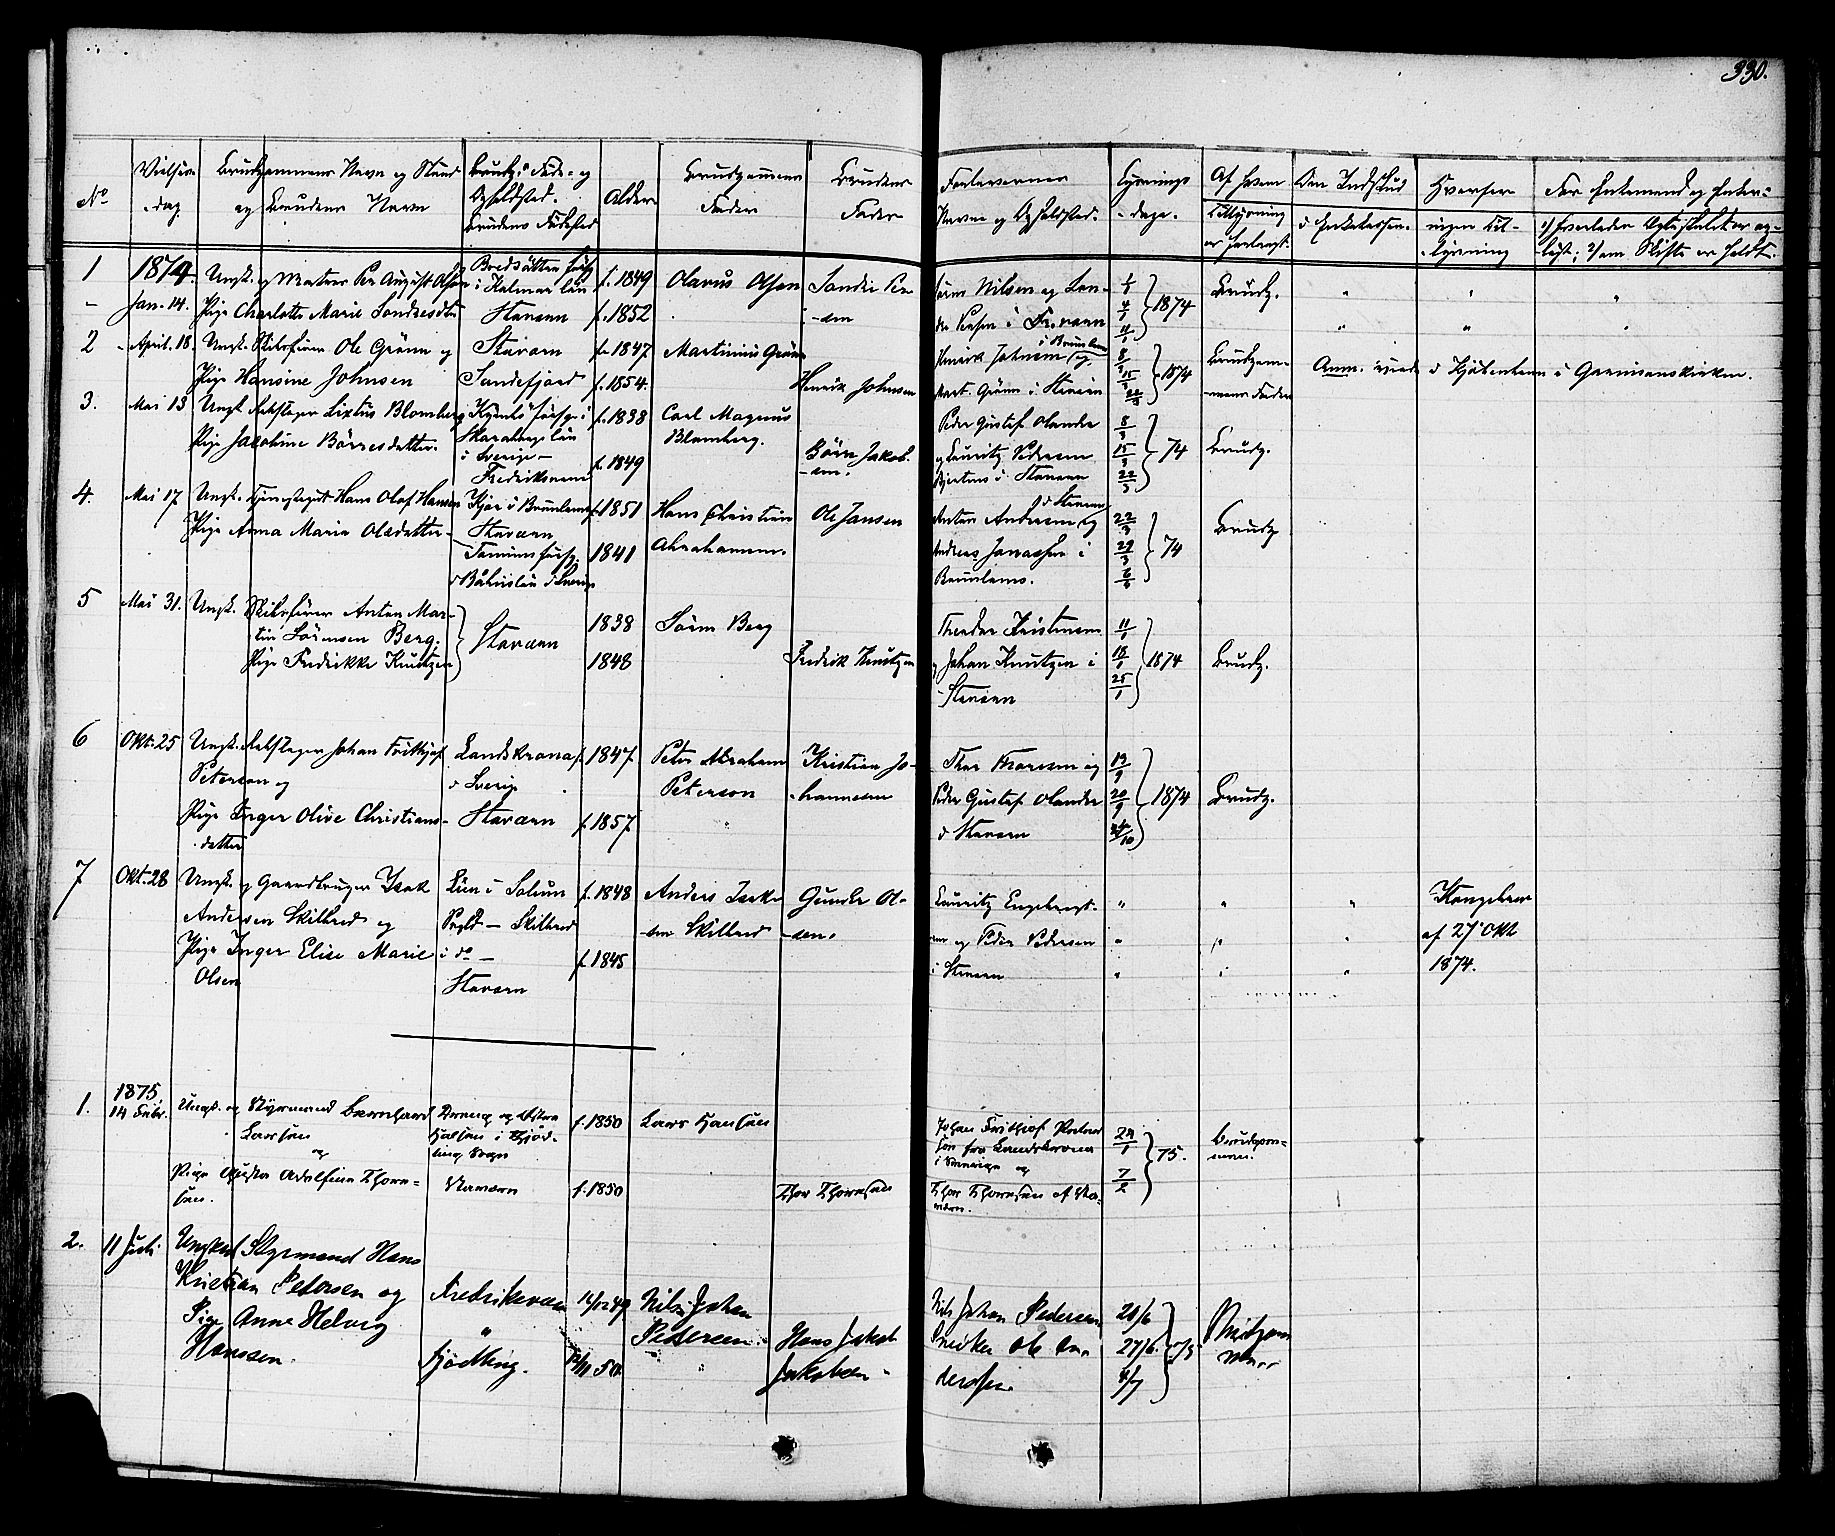 330.
No
Vielses-
dag
Brudgommens Navn og Stand
og Brudens Navn
Brudg.s Føde- og
Opholdsted.
Brudens Fødested
Alder
Brudgommens
Fader
Brudens
Fader
Forlovernes
Navne og Opholdsted.
Lysnings
-dage.
Af hvem
Tillysning
er forlangt.
Den Indskud
i Enkekassen.
Hvorfor
ingen Til-
lysning
For Enkemand og Enke:
1 1874. Ungk. og Matros Per August Olsen
Jan. 14. Pige Charlotte Marie Sondresdtr
i Kalmar län
Stavern
f. 1849
f. 1852
Olavus Olsen
Sondre Pe-
-sen
Nilsen og Son-
i Fr.værn
1/1
4/1
11/1
1874
Brudg.
2 April. 18. Ungk. Skibsfører Ole Grønn og
Pige Hansine Johnsen
Stavern
Sandefjord
f. 1847
f. 1854.
Martinius Grønn
Henrik Johnsen
Henrik Johnsen og
i Brunlanes
Mart. Grønn i Stavern
8/3
15/3
22/3
1874
Brudgom-
mens Fader
Anm. viede i Kjøbenhavn i Garnisonskirken.
3. Mai 13 Ungk. Rebslager Sixtus Blomberg
Pige Jacobine Børresdatter.
Skaraborgs län
i Sverige -
Fredriksværn
f. 1838
f. 1849
Carl Magnus
Blomberg.
Børre Jakob-
-sen.
Peder Gustaf Olander
og Lauritz Pedersen
i Stavern
8/3
15/3
22/3
74
Brudg.
4. Mai 17 Ungk. Hans Olaf Hansen
Pige Anna Maria Olsdatter
Kjær i Brunlanes
Stavern
Tanums förs.
i Båhuslän i Sverige
f. 1851
1841
Hans Christian
Abrahamsen.
Ole Jansen
i Stavern
Anton Andersen og
Andreas Jonassen i
Brunlanes.
22/3
29/3
6/4
74
Brudg
5 Mai 31. Ungk. Skibsfører Anton Mar-
tin Sørensen Berg.
Pige Fredrikke Knutzen
Stavern
1838
1848
Sørn Berg
Fredrik Knutzen
Theodor Kristensen
og Johan Knutzen i
Stavern
11/1
18/1
25/1
1874
Brudg.
6 Okt. 25 Ungk. Rebslager Johan Frithjof
Peterson og
Pige Inger Olive Christians-
datter
Landskrona
i Sverige
Stavern
f. 1847
f. 1857
Peter Abraham
Peterson
Kristian Jo-
-hannesen
Thor Thoresen og
Peder Gustaf Olander
i Stavern
13/9
20/9
1874
Brudg.
7 Okt. 28 Ungk. og Gaardbruger Isak
Andersen Skilbred og
Pige Inger Elise Marie
Olsen
Lien i Solum
Prgld - Skilbred
i do -
Stavern
f. 1848
f. 1845
Anders Isak-
-sen Skilbred
Gunder Ol-
-sen.
Lauritz Engebregt-
sen og Peder Pedersen
i Stavern
Kongebrev
af 27 Okt
1874.
1875,
1. 14 Febr. Ungk. og Styrmand Bernhard
Larsen
og
Pige Gusta Adolfine Thorn-
sen.
i Tjød-
ling Sogn
Stavern
f. 1850
f. 1850
Lars Hansen
Thor Thornsen
Johan Frithjof Peter-
son fra Landskrona
i Sverrige og
Thor Thornsen af Sta-
værn.
24/1
7/2
75.
Brudgom-
men.
2. 11 Juli Ungkarl Styrmand Hans
Kristian Petersen og
Pige Anne Helvig
Hanssen.
Fredriksværn
Tjödling.
49
50
Nils Johan
Pedersen.
Hans Jakob
Jakobsen
Nils Johan Pedersen
Snedker Ole An-
dersen
20/6
27/6
4/7
75
Brudgom-
men